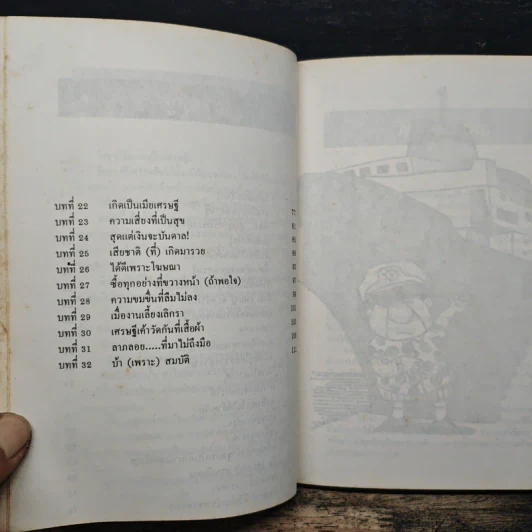 บทที่ 22 เกิดเป็นเมียเศรษฐี 77
บทที่ 23 ความเสี่ยงที่เป็นสุข
บทที่ 24 สุดแต่เงินจะบันดาล!
บทที่ 25 เสียชาติ (ที่) เกิดมารวย
บทที่ 26 ได้ดีเพราะโฆษณา
บทที่ 27 ซื้อทุกอย่างที่ขวางหน้า (ถ้าพอใจ)
บทที่ 28 ความขมขื่นที่ลืมไม่ลง
บทที่ 29 เมื่องานเลี้ยงเลิกรา
บทที่ 30 เศรษฐีเค้าวัดกันที่เสื้อผ้า
บทที่ 31 ลาภลอย.....ที่มาไม่ถึงมือ
บทที่ 32 บ้า (เพราะ) สมบัติ